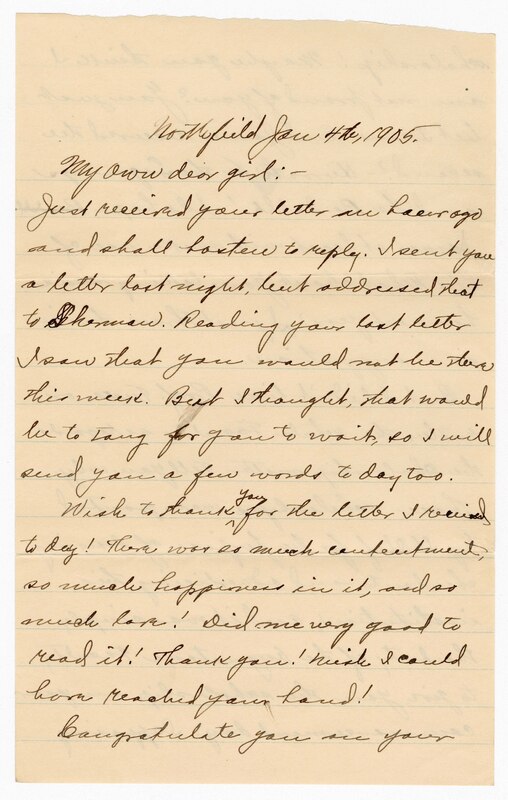 Northfield Jan 4th, 1905.
My own dear girl:-
Just received your letter an hour ago
and shall hasten to reply. I sent you
a letter last night, but addressed that
to Sherman. Reading your last letter
I saw that you would not be there
this week. But I thought, that would
be to long for you to wait, so I will
send you a few words to day too.
Wish to thank you for the letter I received
to day! There was so much contentment,
so much happiness in it, and so
much love! Did me very good to
read it! Thank you! Wish I could
have reached your hand!
Congratulate you on your